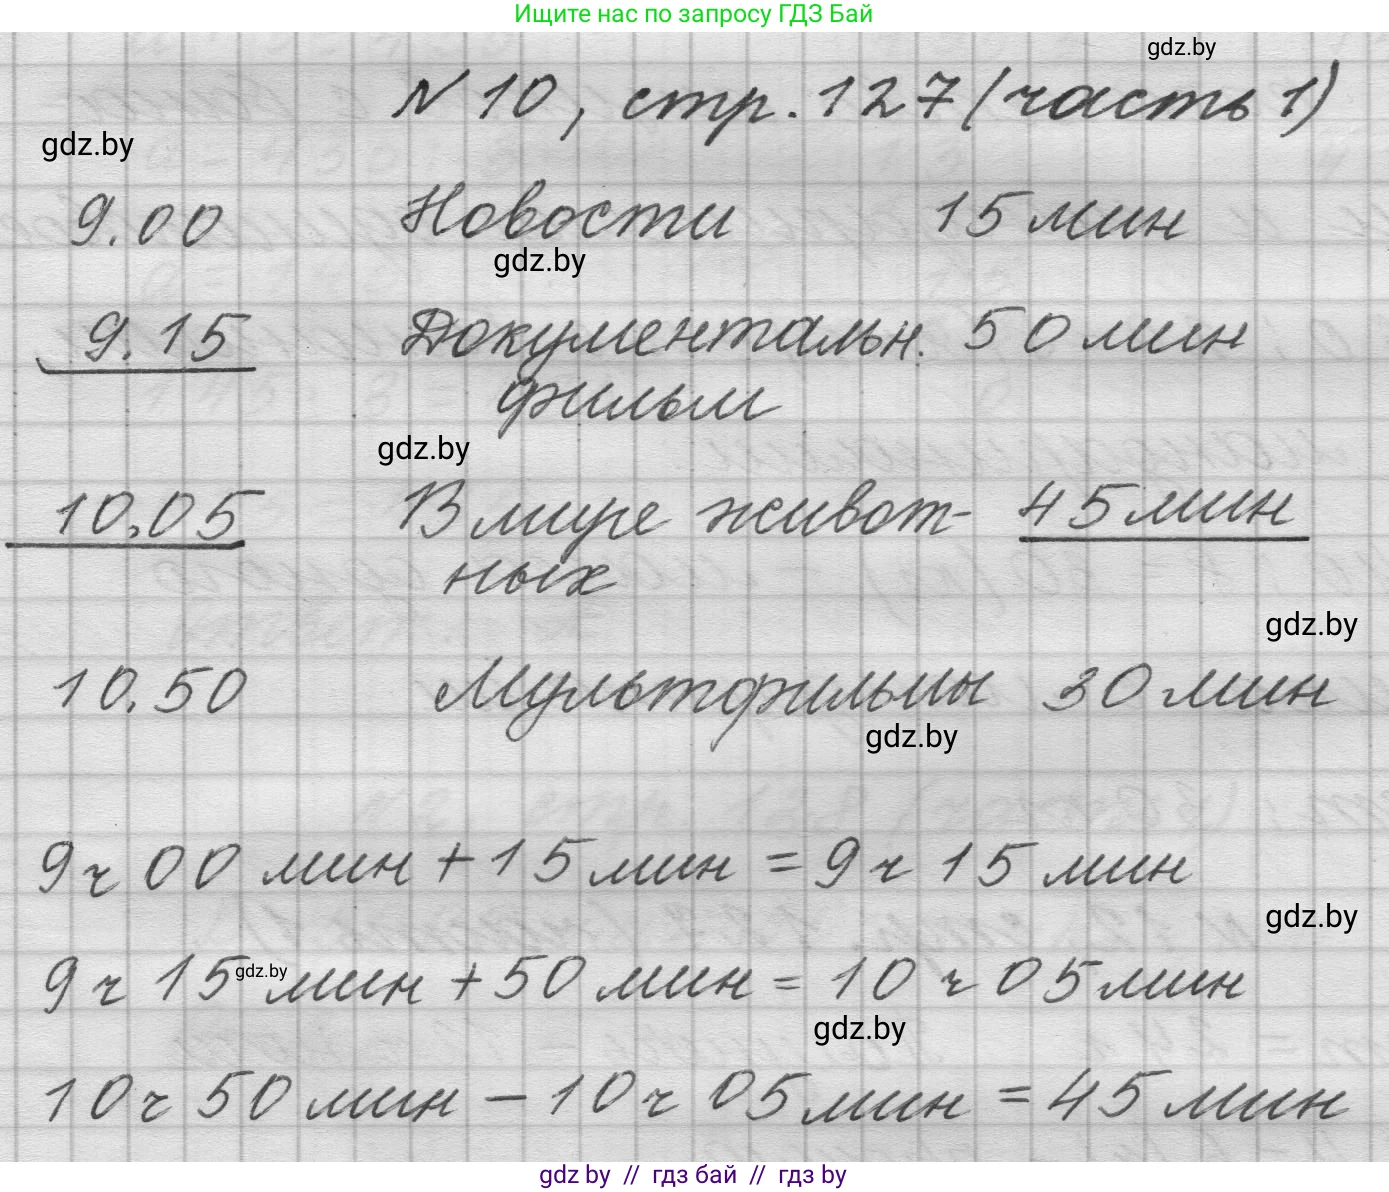 Ищите нас по запросу ГДЗ Бай
gdz.by
N 10, стр. 127 (часть 1)
gdz.by
9.00 Новости 15 мин
gdz.by
9.15 Документальн. 50 мин
фильм
gdz.by
10.05 В мире живот- 45 мин
ных
gdz.by
10.50 Мультфильмы 30 мин
gdz.by
9 ч 00 мин + 15 мин = 9 ч 15 мин
gdz.by
9 ч 15 мин + 50 мин = 10 ч 05 мин
gdz.by
gdz.by
10 ч 50 мин - 10 ч 05 мин = 45 мин
gdz by // гдз бай // гдз by